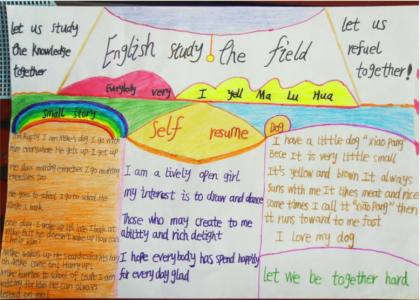 let us study
the knowledge
together
English study the field
let us
refuel
together!
Everybody very
I Yell Ma Lu Hua
Small story
I am Rupty I am Mike's dog I go with
him everywhere He gets up I get up
He does morning exercises I go morning
exercises too
He goes to school I go to school He
One day I wake up
Mike but he doesn't wake up How can
I help him?
Mike wakes up He
Oh Mike come on! Hurry up!
Mike hurries to school of course I am
waiting for him He can always
Self resume
I am a lively open girl
my interest is to draw and dance
Those who may create to me
ability and rich delight
I hope everybody has spend happily
for every day glad
Dog
I have a little dog "xiao Pang"
Bece it is very little small
It's yellow and brown It always
runs with me It likes meat and rice
some times I call it "xiao Pang" then
it runs toward to me fast
I love my dog
let we be together hard